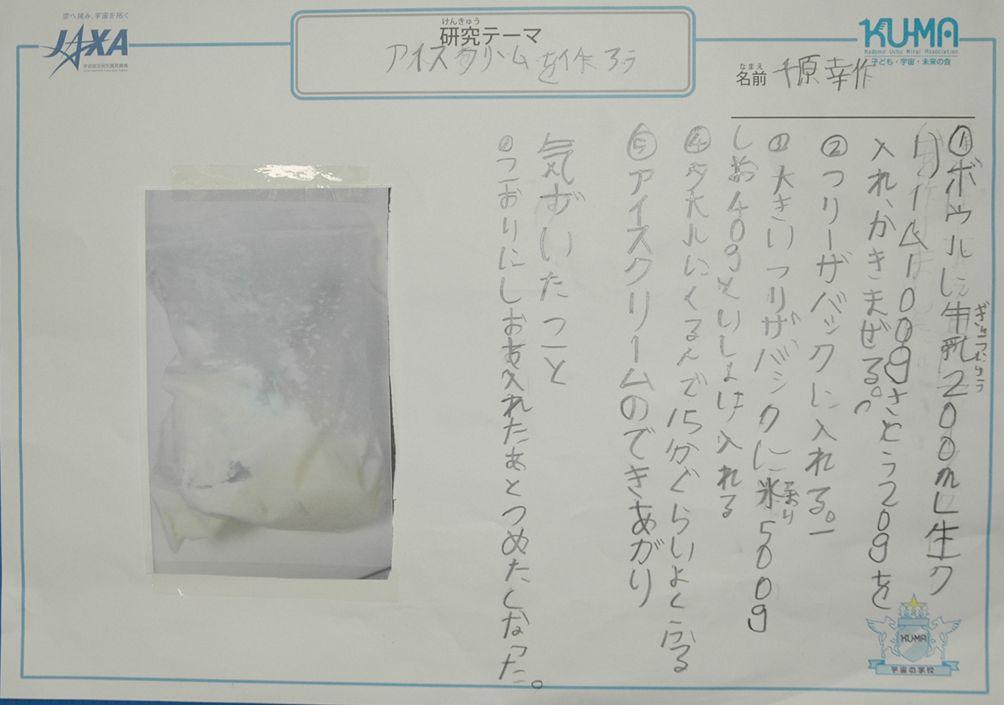 空へ挑み、宇宙を拓く
JAXA
けんきゅう
研究テーマ
アイスクリームを作ろう
KUMA
Kodomo Uchu Mirai Association
子ども・宇宙・未来の会
なまえ
名前 千原幸作
①ボウルに牛乳200mL生ク
ぎゅうにゅう
リイム100gさとう20gを
入れ、かきまぜる。
②フリーザバックに入れる。
③大きいフリザバックに氷500g
こおり
しお40gといしょは入れる
④タオルにくるんで15分ぐらいよくふる
⑤アイスクリームのできあがり
気ずいたこと
こおりにしおお入れたあとつめたくなった。
KUMA
宇宙の学校